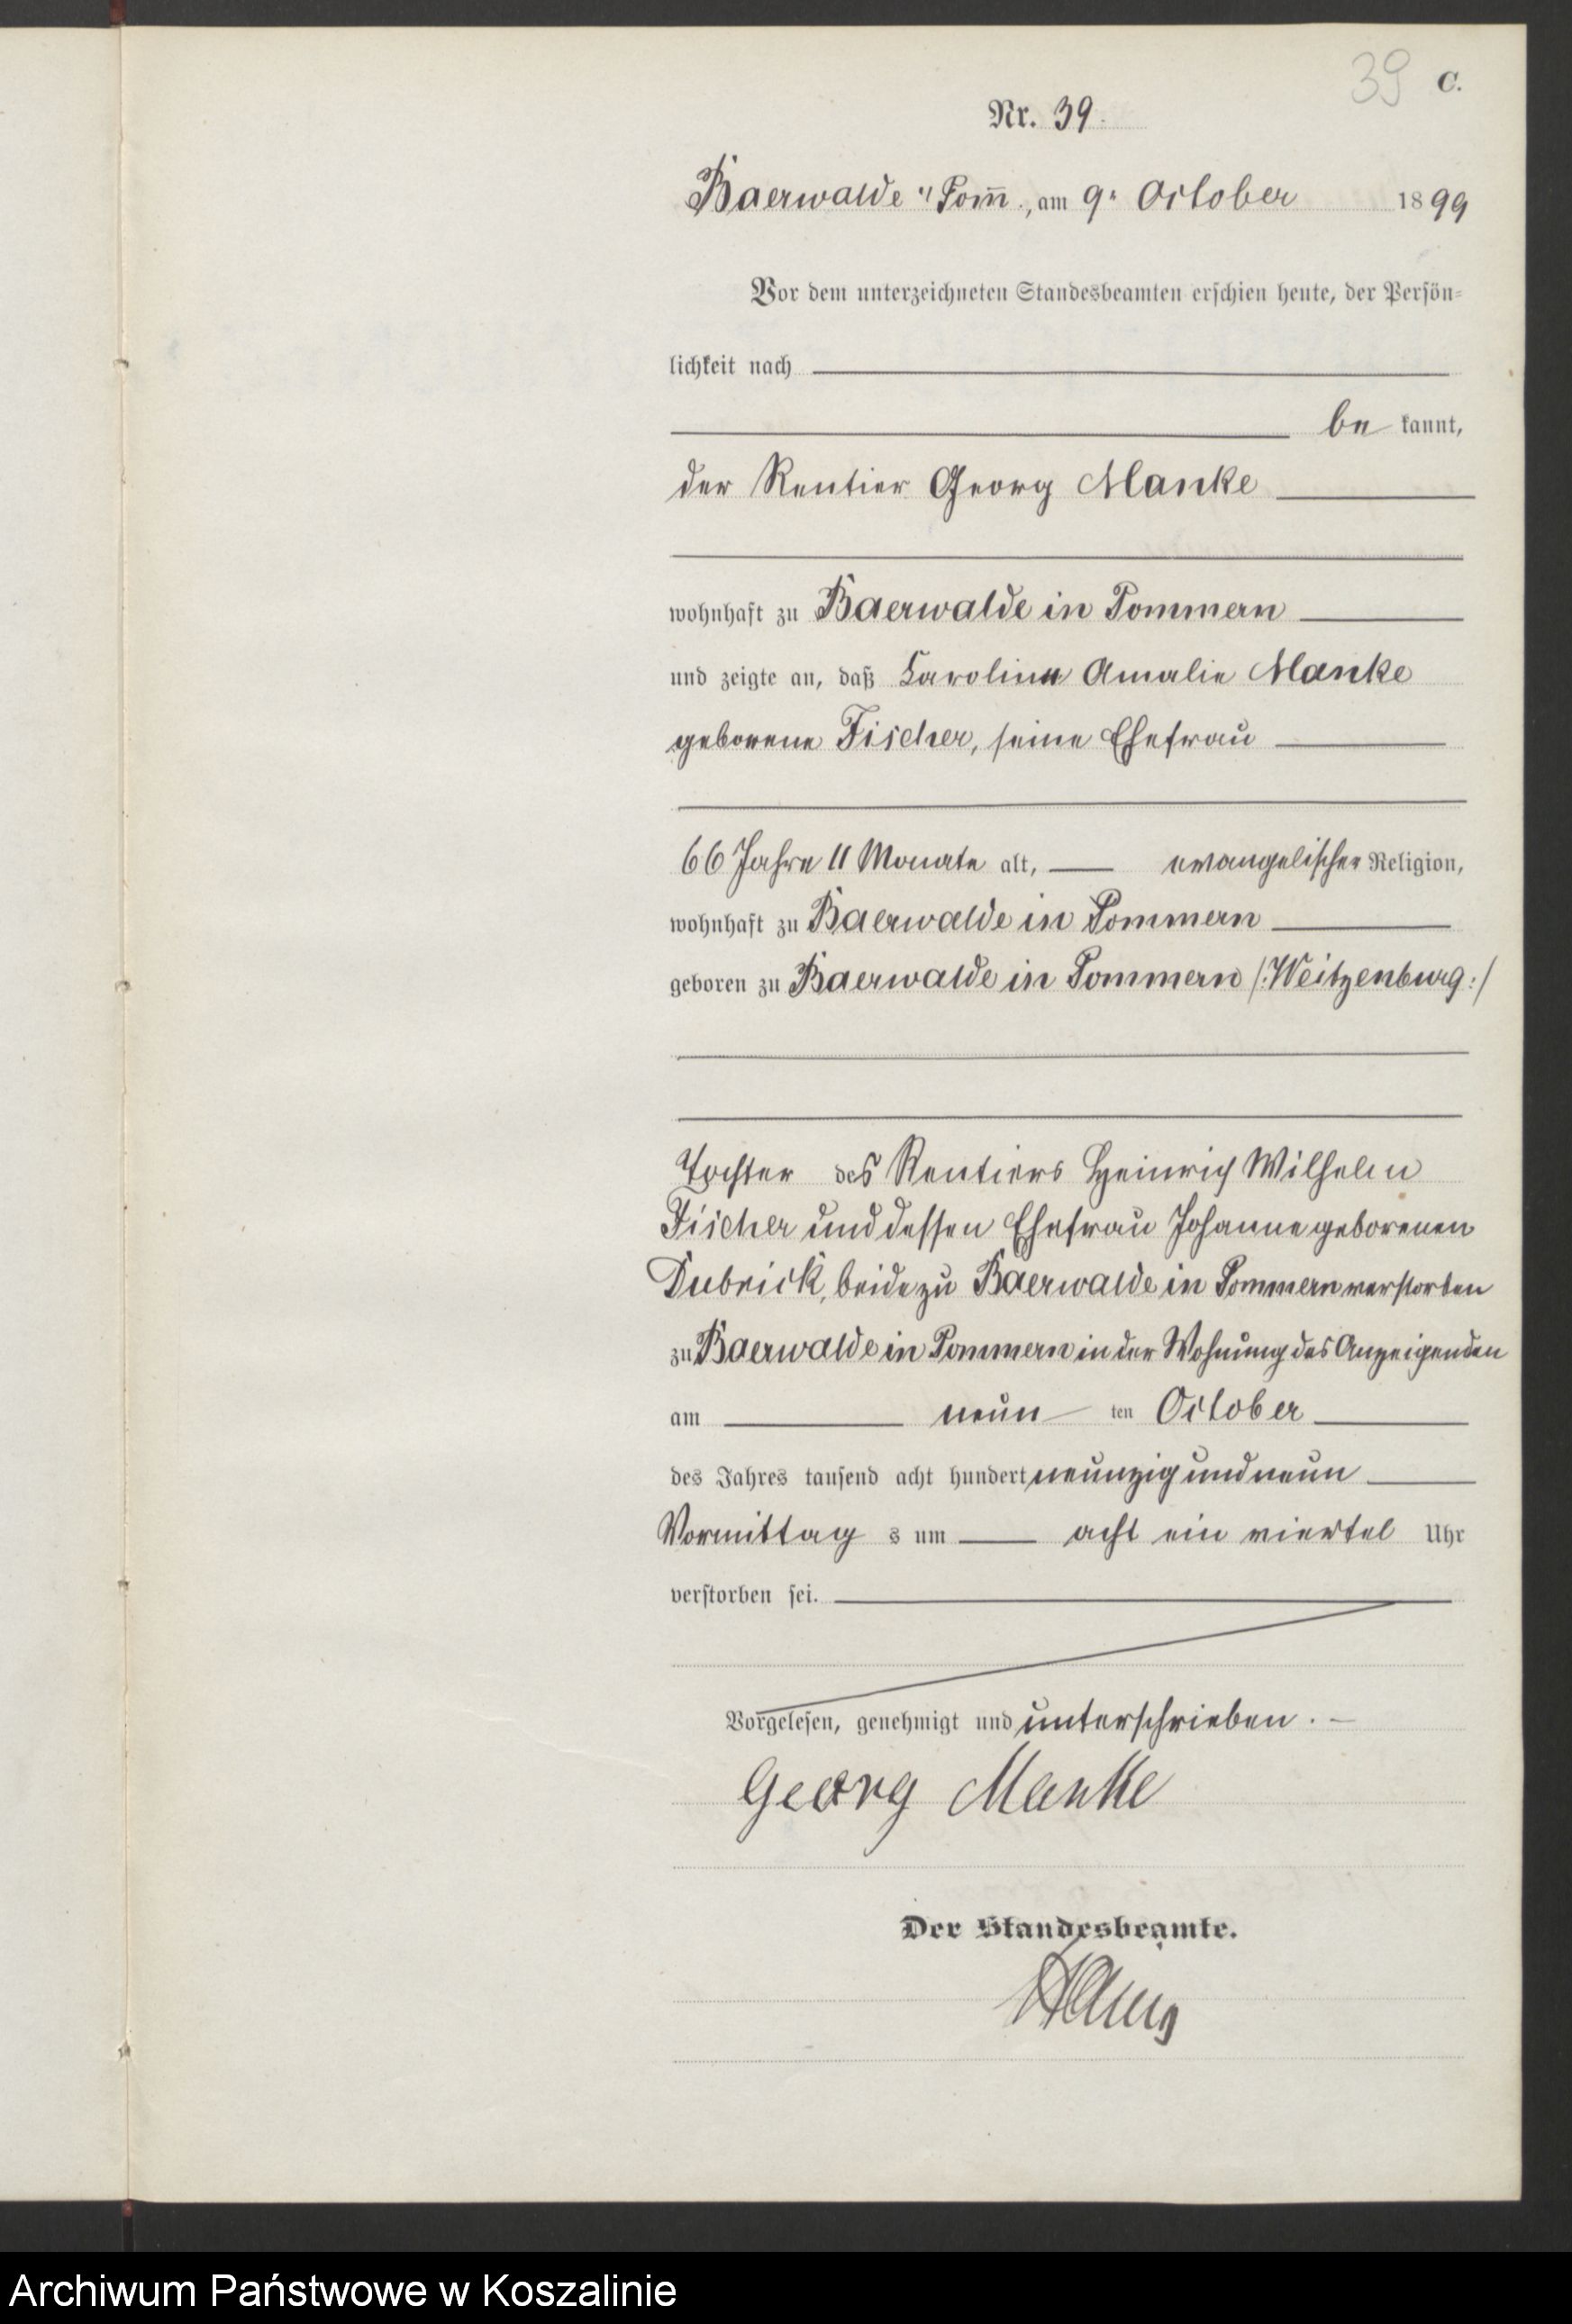 39 C.
Nr. 39.
Baerwalde i/ Pom̅., am 9n October 1899
Vor dem unterzeichneten Standesbeamten erschien heute, der Persön-
lichkeit nach
be kannt,
der Rentier Georg Manke
wohnhaft zu Baerwalde in Pommern
und zeigte an, daß Karoline Amalie Manke
geborene Fischer, seine Ehefrau
66 Jahre 11 Monate alt, evangelischer Religion,
wohnhaft zu Baerwalde in Pommern
geboren zu Baerwalde in Pommern /:Weitzenburg:/
Tochter des Rentiers Heinrich Wilhelm
Fischer und dessen Ehefrau Johanne geborenen
Dubrick, beide zu Baerwalde in Pommern verstorben
zu Baerwalde in Pommern in der Wohnung des Anzeigenden
am neun ten October
des Jahres tausend acht hundert neunzig und neun
Vormittag s um acht ein viertel Uhr
verstorben sei.
Vorgelesen, genehmigt und unterschrieben. –
Georg Manke
Der Standesbeamte.
Archiwum Państwowe w Koszalinie